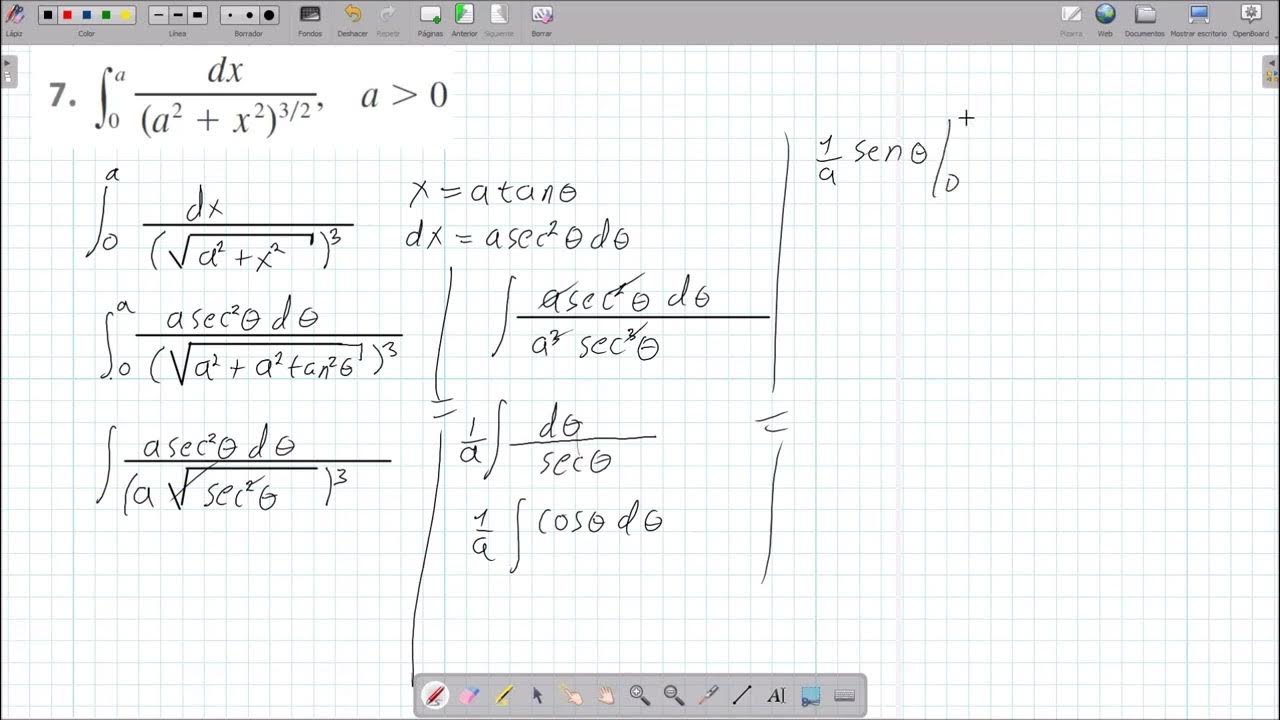 Lápiz Color Línea Borrador Fondos Deshacer Repetir Páginas Anterior Siguiente Borrar Pizarra Web Documentos Mostrar escritorio OpenBoard
7. ∫₀ᵃ dx / (a² + x²)^{3/2}, a > 0
∫₀ᵃ dx / (√(a² + x²))³
x = a tanθ
dx = a sec²θ dθ
∫₀ᵃ a sec²θ dθ / (√(a² + a² tan²θ))³
∫ a sec²θ dθ / (a √(sec²θ))³
=
∫ a sec²θ dθ / a³ sec³θ
1/a ∫ dθ / secθ
1/a ∫ cosθ dθ
=
1/a senθ |₀
AI